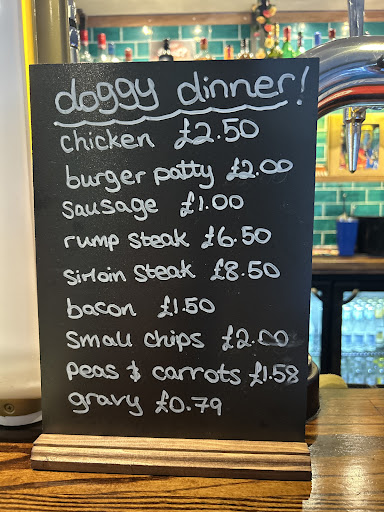 doggy dinner!
chicken £2.50
burger patty £2.00
sausage £1.00
rump steak £6.50
sirloin steak £8.50
bacon £1.50
small chips £2.00
peas & carrots £1.58
gravy £0.79